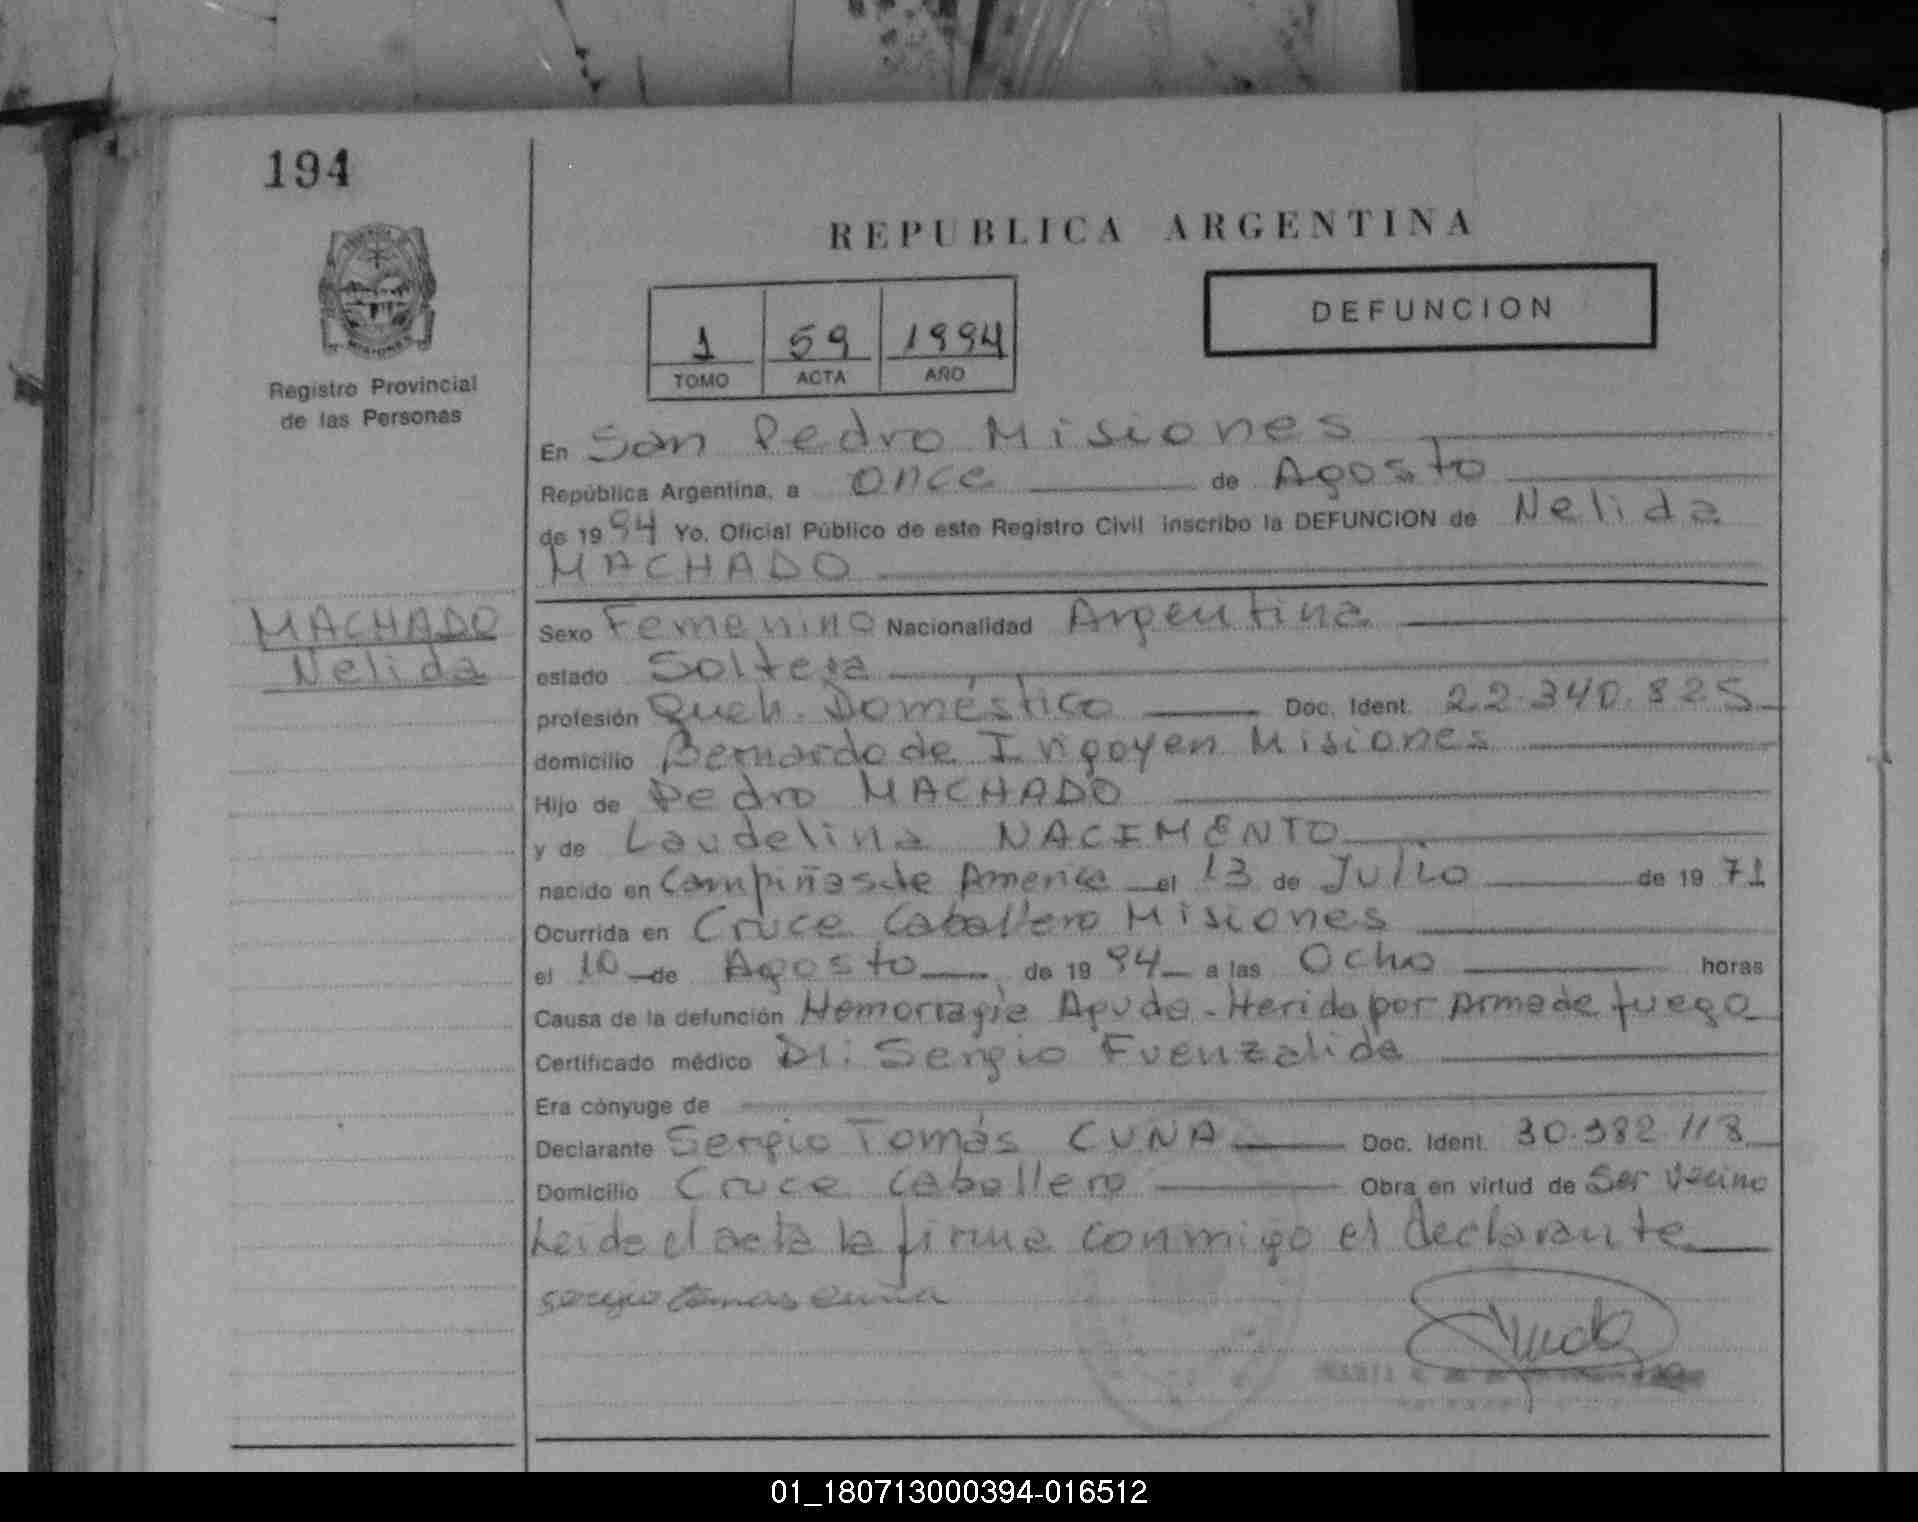 194
REPUBLICA ARGENTINA
DEFUNCION
1 59 1994
TOMO ACTA AÑO
Registro Provincial
de las Personas
En San Pedro Misiones
República Argentina, a once de Agosto
de 1994 Yo, Oficial Público de este Registro Civil inscribo la DEFUNCION de Nelida
MACHADO
MACHADO
Nelida
Sexo Femenino Nacionalidad Argentina
estado Soltera
profesión Queh. Doméstico Doc. Ident. 22.340.825
domicilio Bernardo de Irigoyen Misiones
Hijo de Pedro MACHADO
y de Laudelina NACIMENTO
nacido en Campiñas de America el 13 de Julio de 1971
Ocurrida en Cruce Caballero Misiones
el 10 de Agosto de 1994 a las Ocho horas
Causa de la defunción Hemorragia Aguda - Herida por Arma de fuego
Certificado médico Dr: Sergio Fuenzalida
Era cónyuge de
Declarante Sergio Tomás CUNA Doc. Ident. 30.382.118
Domicilio Cruce Caballero Obra en virtud de Ser vecino
Leida el acta la firma conmigo el declarante
sergio tomas cuña
01_180713000394-016512